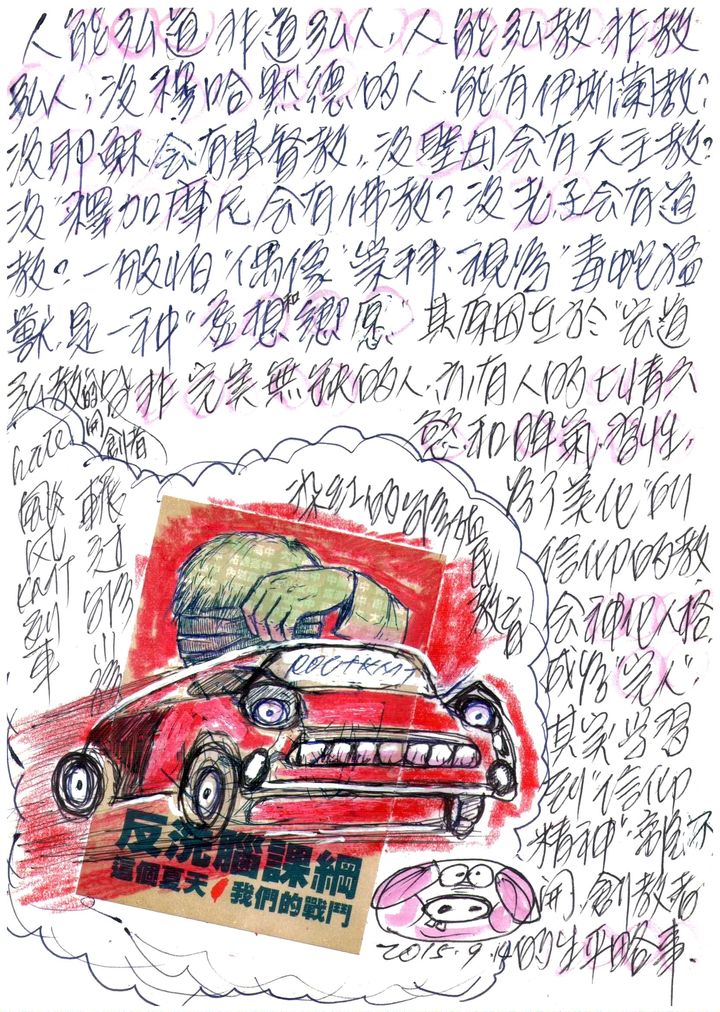 人能弘道,非道弘人,人能弘教,非教
弘人,沒穆哈默德的人能有伊斯蘭教?
沒耶穌会有基督教,沒聖母会有天主教?
沒釋加摩尼会有佛教?沒老子会有道
教?一般怕"偶像"崇拜,視為"毒蛇猛
獸是一种"虛想和鄉愿"其原因在於"宏道
弘教的皆非完美無缺的人,
慾,和脾氣,習性,
為了美化"所
信仰的教
会神化人格
成為"完人".
其实学习
到"信仰
精神"離不
開,創教者
的生平略事.
的創者
ROCTKMT
反洗腦課綱
這個夏天 我們的戰鬥
2015.9.14